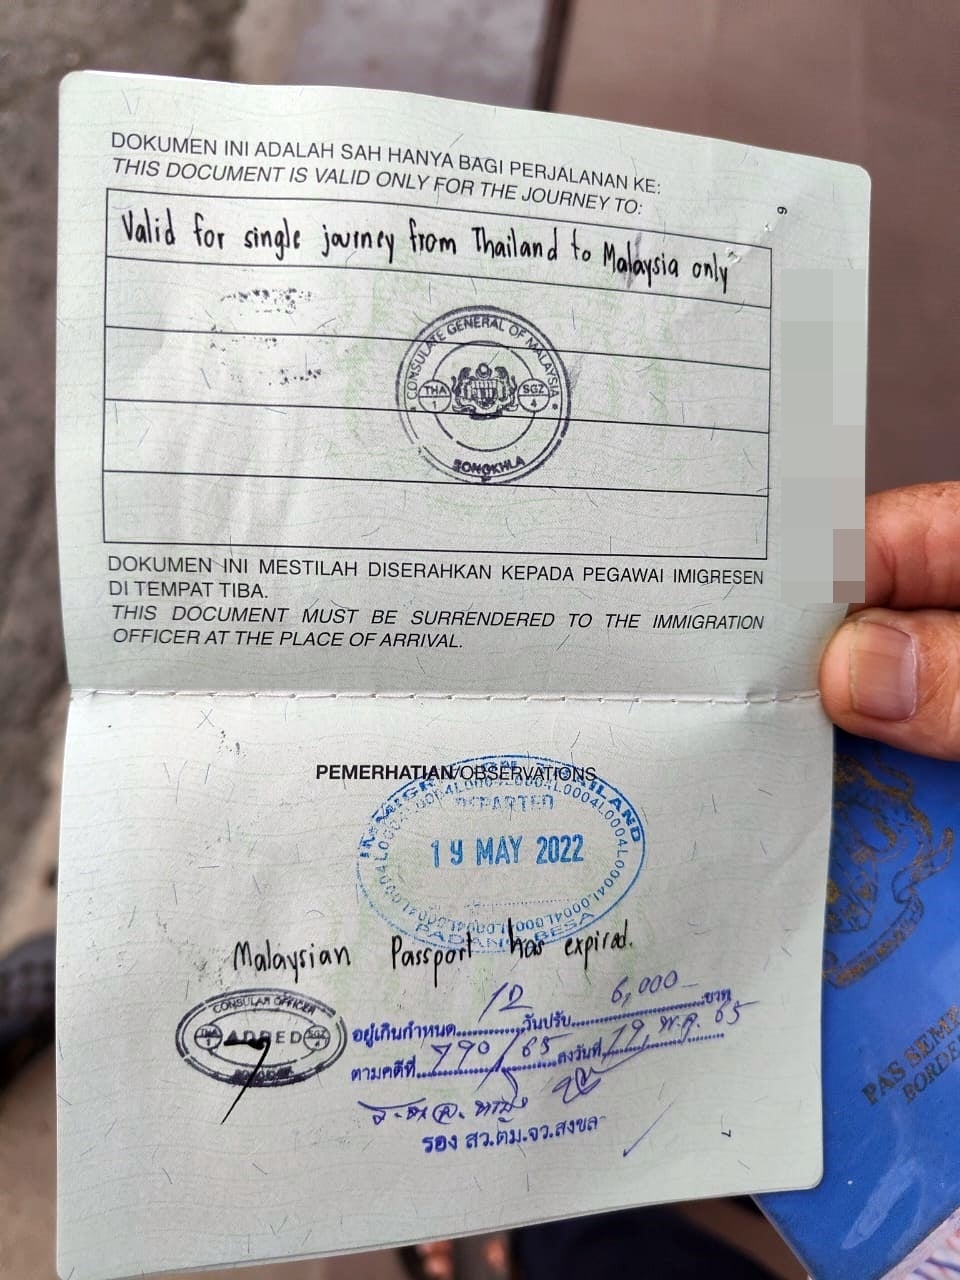 DOKUMEN INI ADALAH SAH HANYA BAGI PERJALANAN KE:
THIS DOCUMENT IS VALID ONLY FOR THE JOURNEY TO:
6
Valid for single journey from Thailand to Malaysia only
CONSULATE GENERAL OF MALAYSIA
THA 1
SGZ 4
SONGKHLA
DOKUMEN INI MESTILAH DISERAHKAN KEPADA PEGAWAI IMIGRESEN
DI TEMPAT TIBA.
THIS DOCUMENT MUST BE SURRENDERED TO THE IMMIGRATION
OFFICER AT THE PLACE OF ARRIVAL.
PEMERHATIAN/OBSERVATIONS
IMMIGRATION THAILAND
DEPARTED
19 MAY 2022
PADANG BESA
Malaysian Passport has expired.
CONSULAR OFFICER
THA
SGZ
อยู่เกินกำหนด 12 วันปรับ 6,000 บาท
ตามคดีที่ 790/65 ลงวันที่ 19 พ.ค. 65
รอง สว.ตม.จว.สงขลา
7
PAS SEMP
BORDE